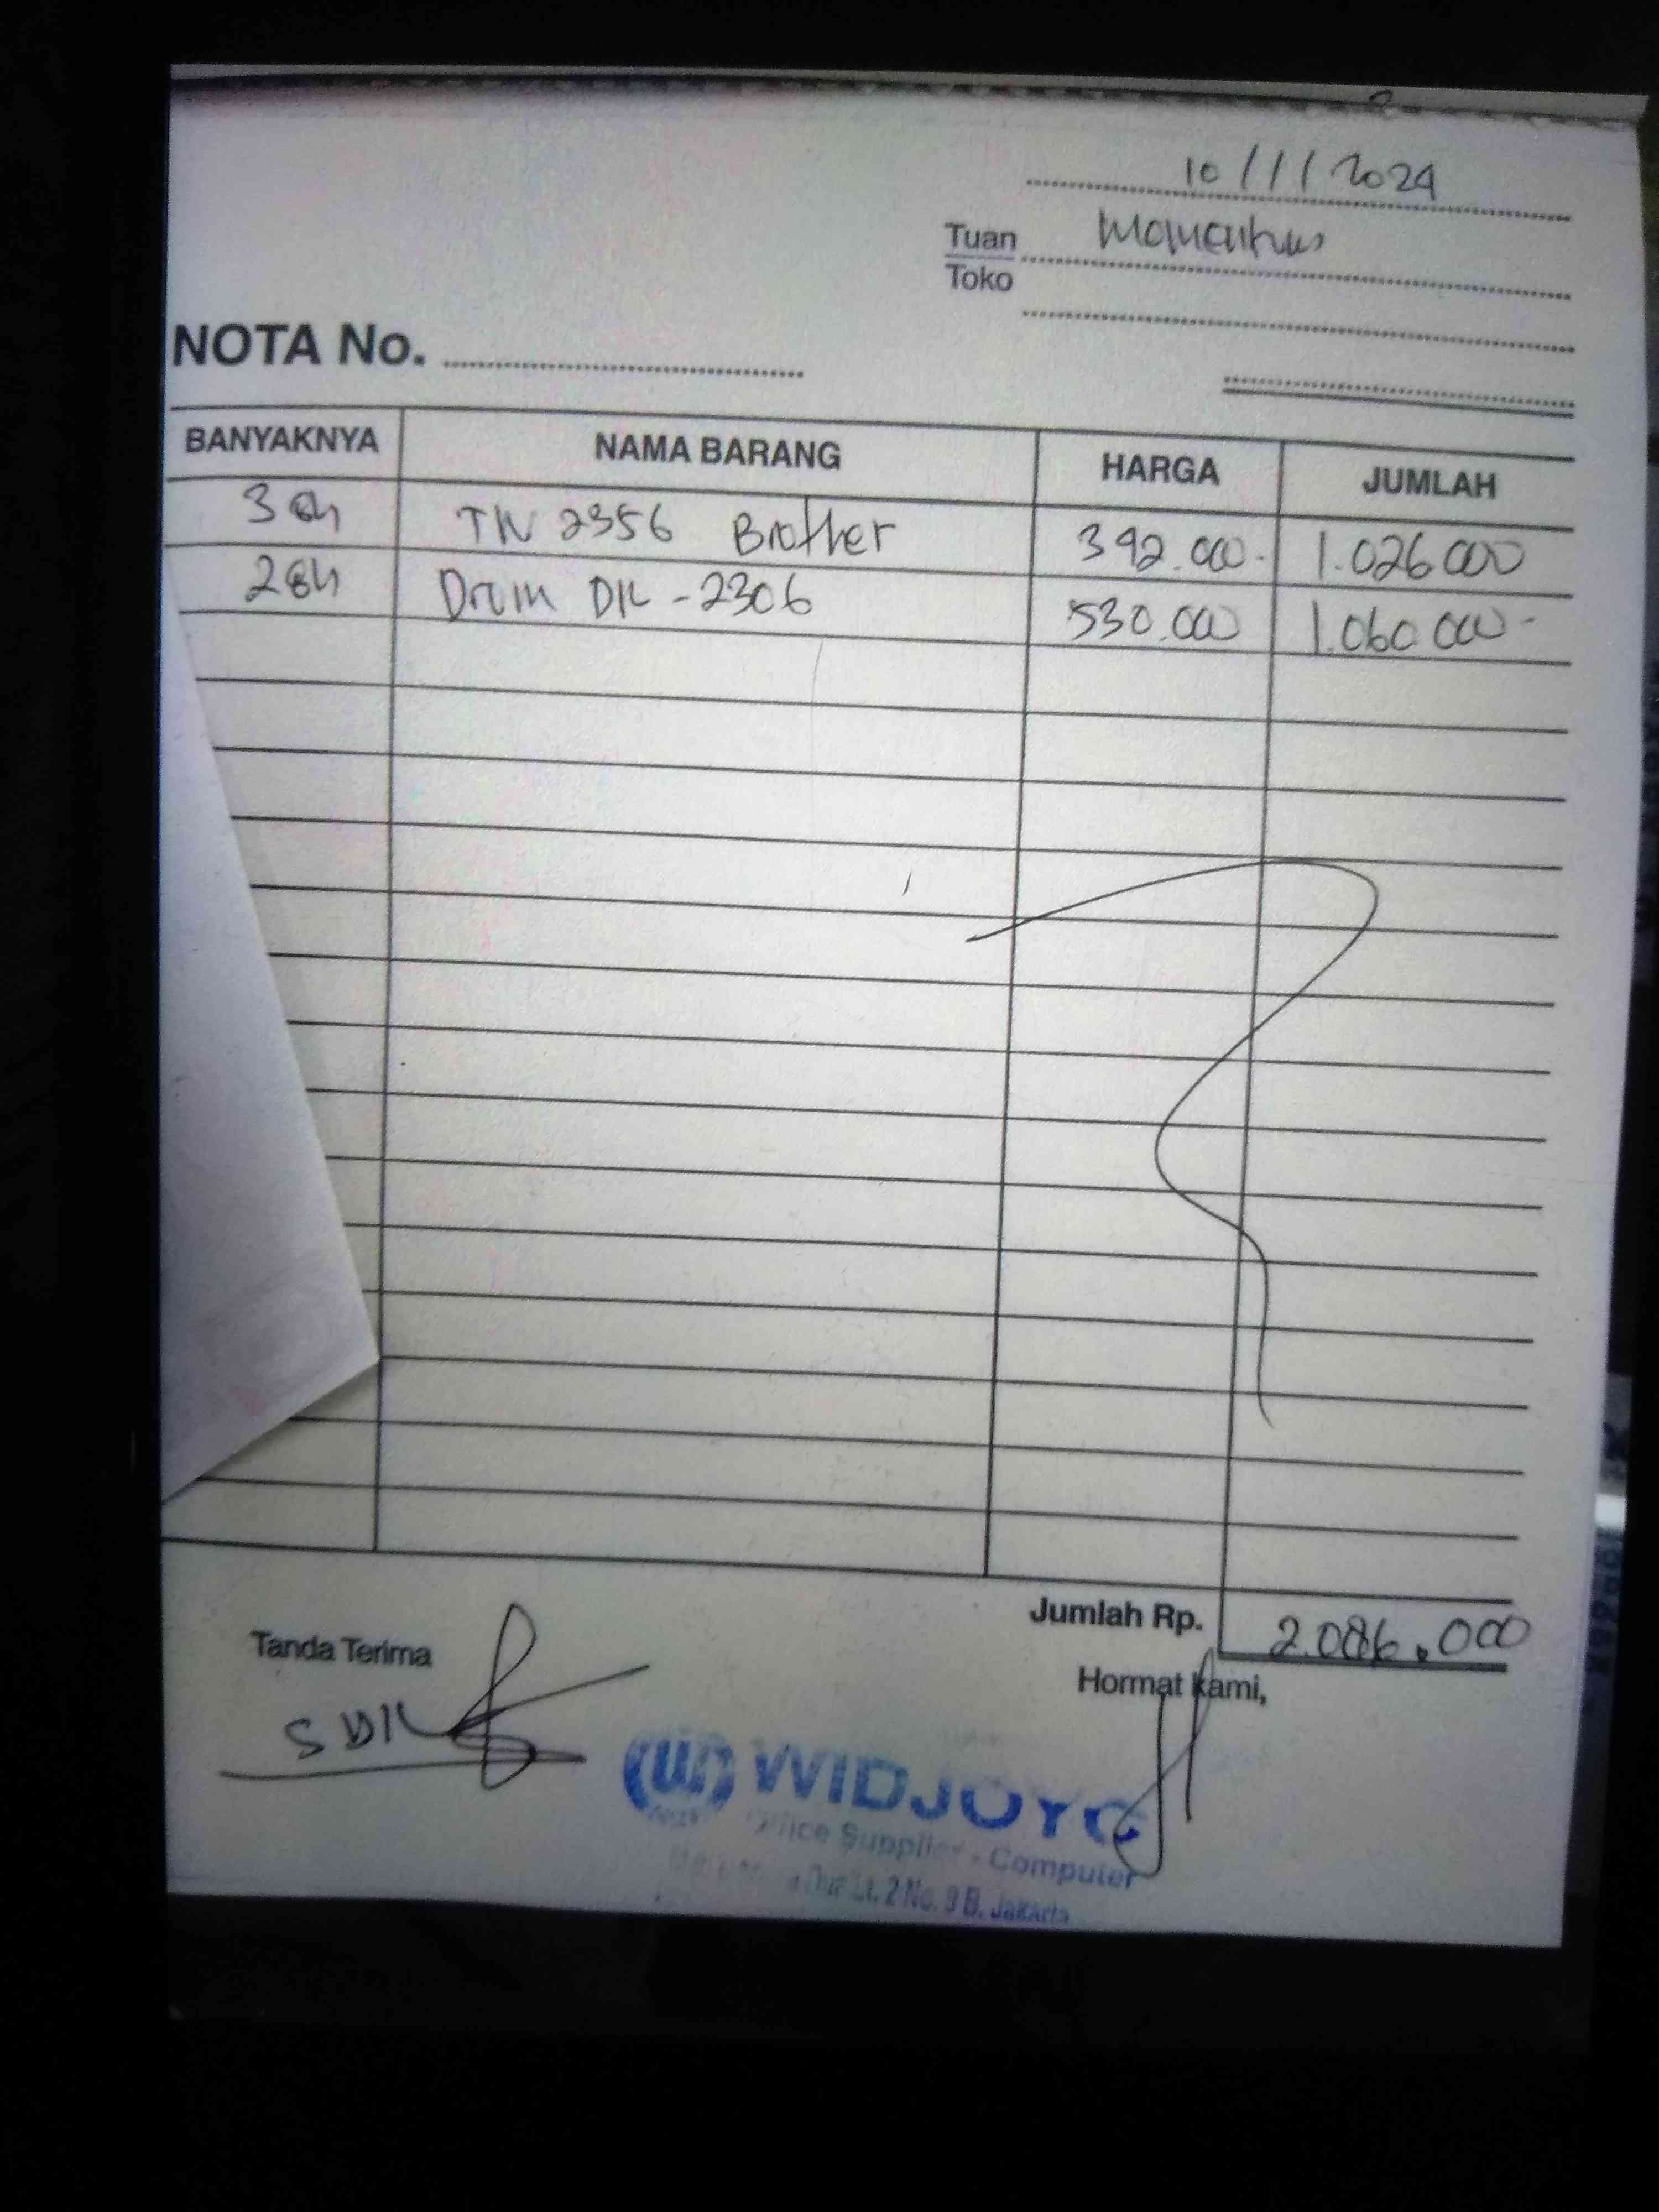 10/1/2024
Tuan Momentum
Toko
NOTA No.
BANYAKNYA NAMA BARANG HARGA JUMLAH
3 bh TN 2356 Brother 392.000.- 1.026 000
2 bh Drum DR - 2306 530.000 1.060 000-
Jumlah Rp. 2.086.000
Tanda Terima
Hormat kami,
WIDJOYO
Office Supplier - Computer
Lt. 2 No. 9 B. Jakarta